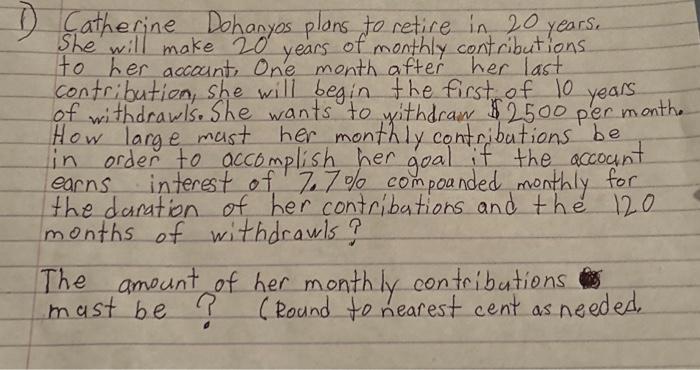 1) Catherine Dohanyos plans to retire in 20 years.
She will make 20 years of monthly contributions
to her account. One month after her last
contribution, she will begin the first of 10 years
of withdrawls. She wants to withdraw $2500 per month.
How large must her monthly contributions be
in order to accomplish her goal if the account
earns interest of 7.7% compounded monthly for
the duration of her contributions and the 120
months of withdrawls?
The amount of her monthly contributions
must be ? (Round to nearest cent as needed.